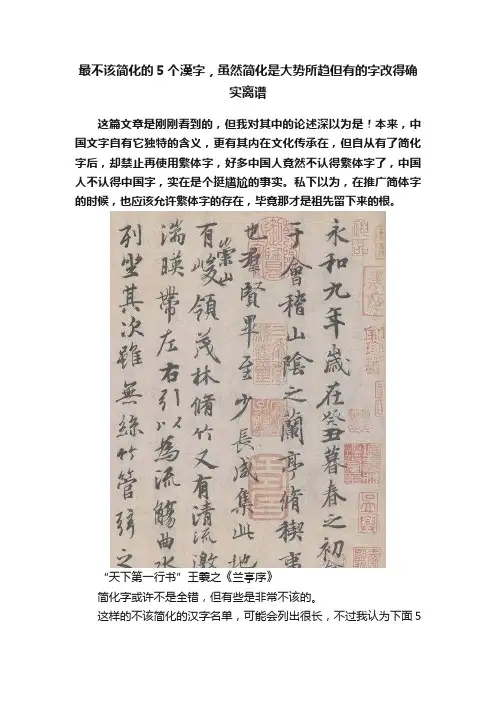 最不该简化的5个漢字，虽然简化是大势所趋但有的字改得确
实离谱
这篇文章是刚刚看到的，但我对其中的论述深以为是！本来，中
国文字自有它独特的含义，更有其内在文化传承在，但自从有了简化
字后，却禁止再使用繁体字，好多中国人竟然不认得繁体字了，中国
人不认得中国字，实在是个挺尴尬的事实。私下以为，在推广简体字
的时候，也应该允许繁体字的存在，毕竟那才是祖先留下来的根。
永和九年歲在癸丑暮春之初會
于會稽山陰之蘭亭脩禊事
也羣賢畢至少長咸集此地
有崇山峻領茂林脩竹又有清流激
湍暎帶左右引以為流觴曲水
列坐其次雖無絲竹管弦之
“天下第一行书”王羲之《兰亭序》
简化字或许不是全错，但有些是非常不该的。
这样的不该简化的汉字名单，可能会列出很长，不过我认为下面5